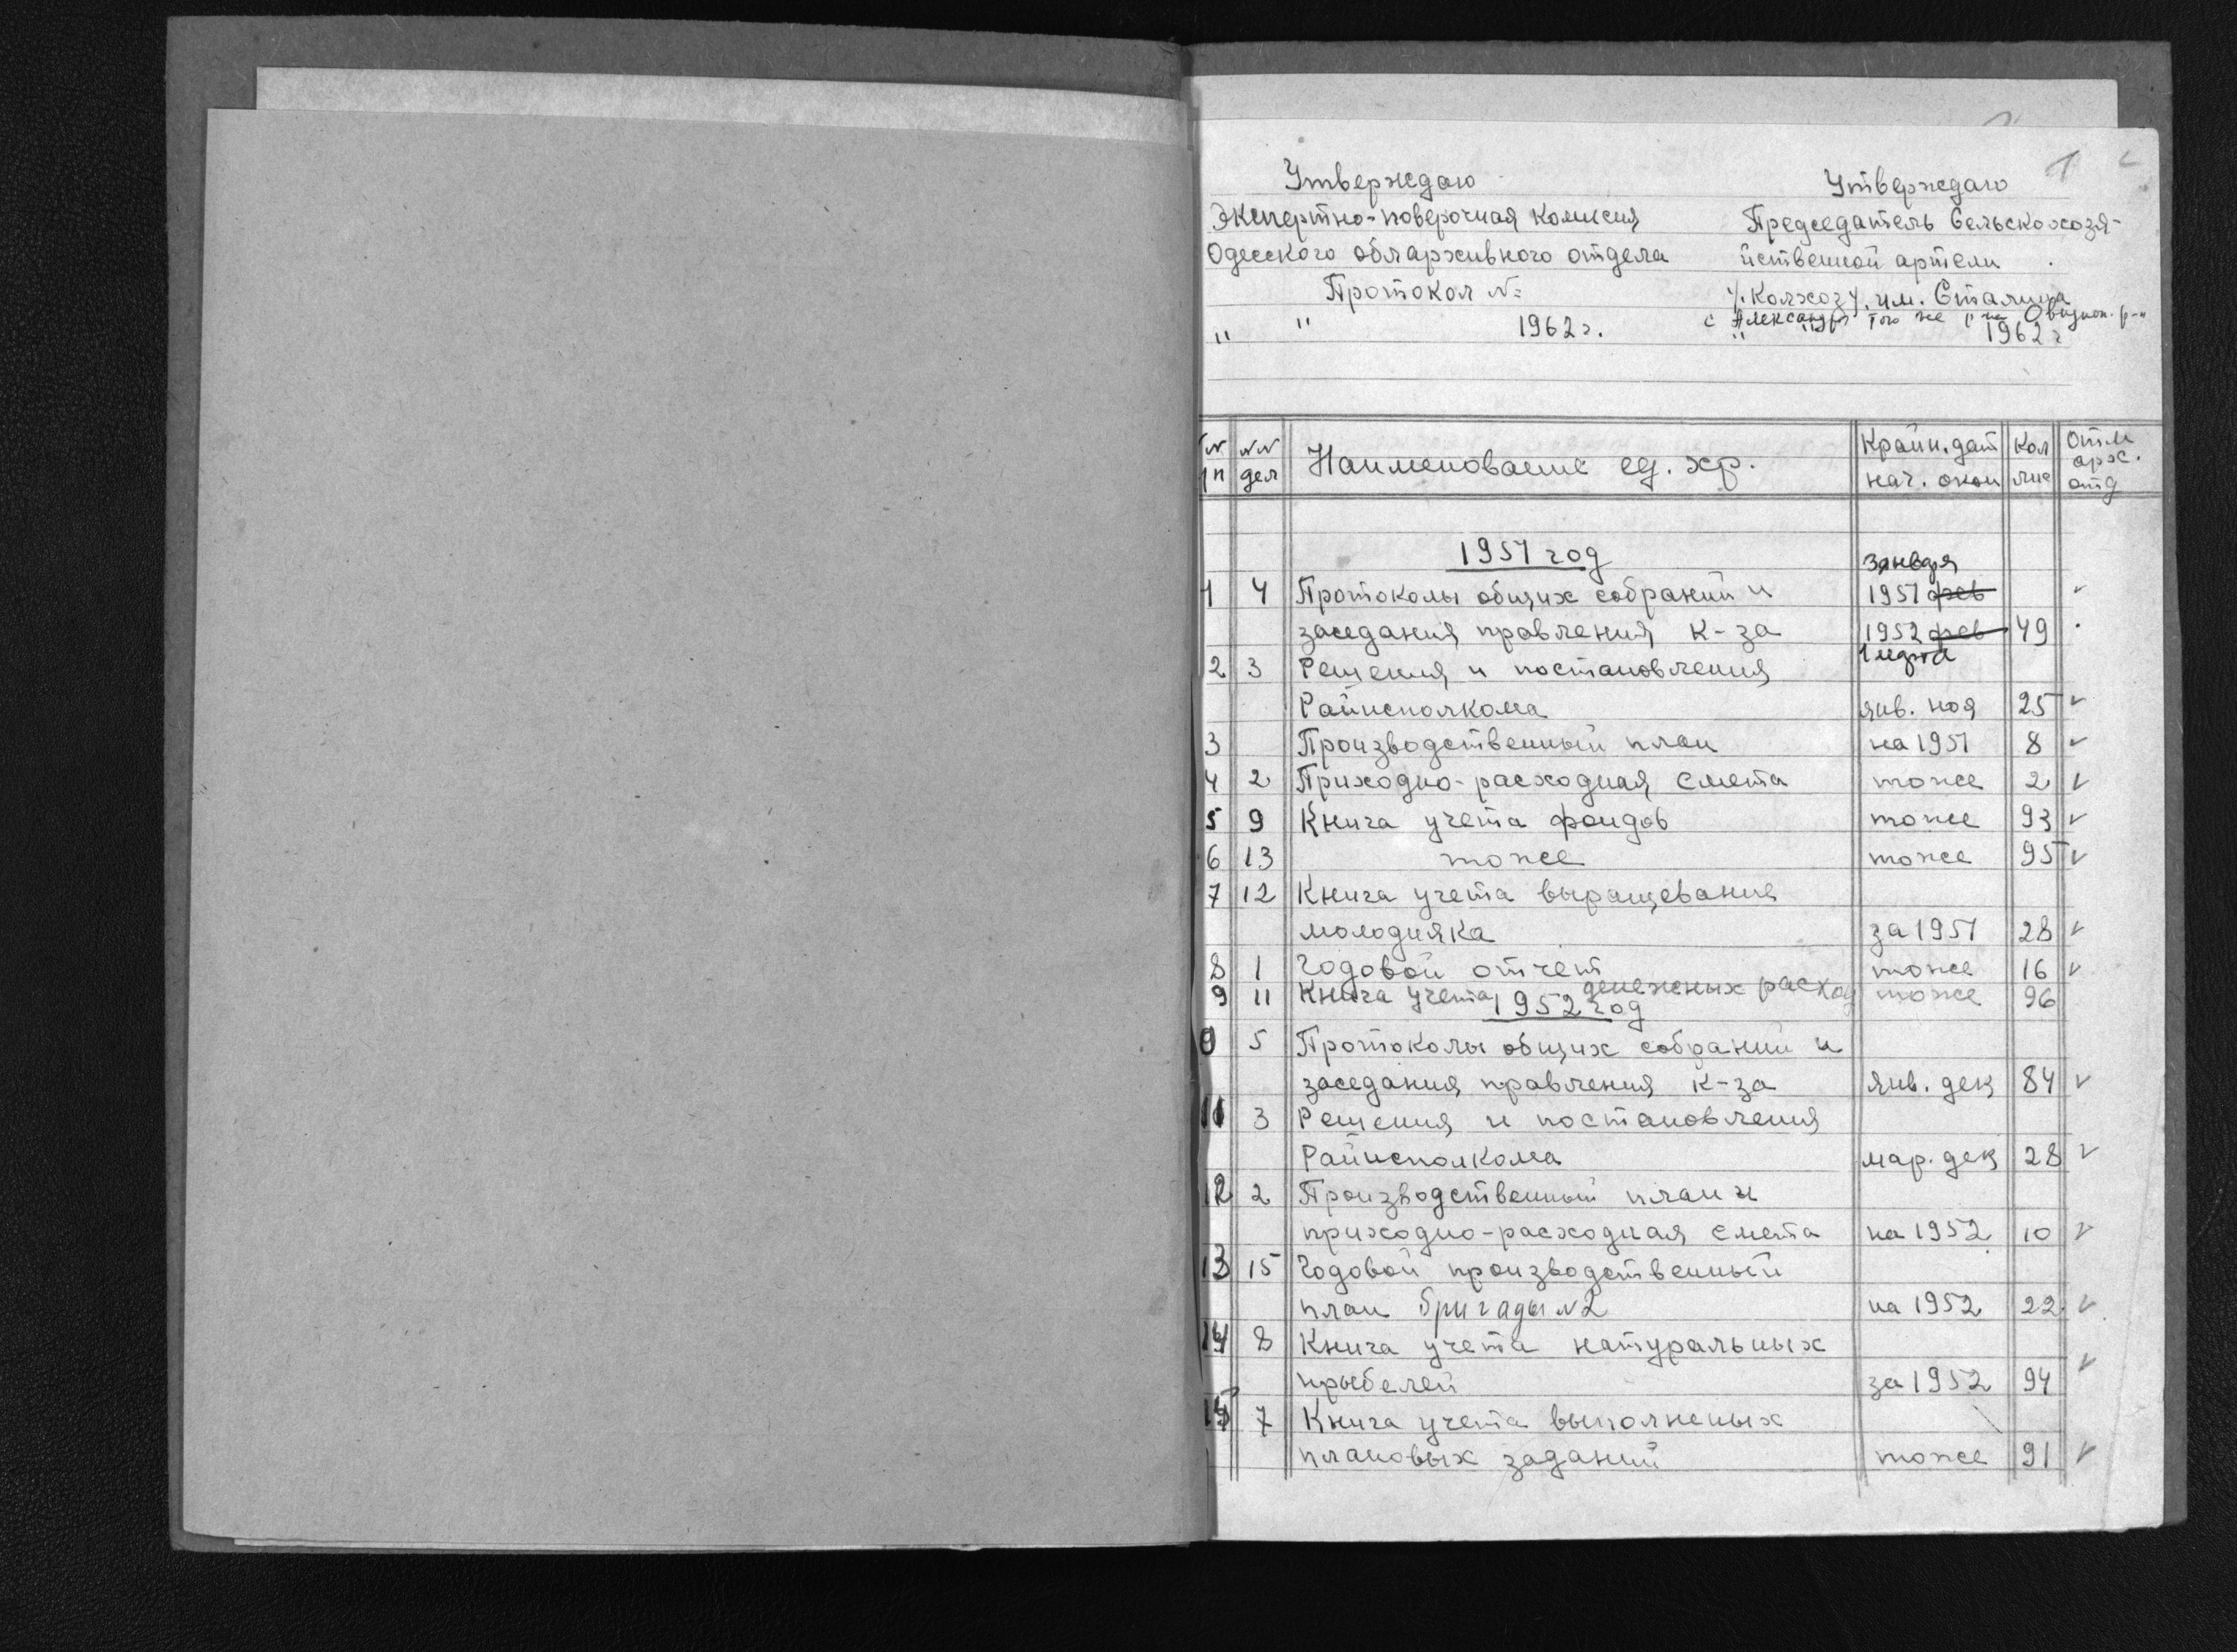 1
Утверждаю
Экспертно-поверочная комиссия
Одесского облархивного отдела
Протокол №
" " 1962 г.
Утверждаю
Председатель Сельскохозя-
йственной артели
/Колхоз/ им. Сталина
с Александр того же р-на Овидиоп. р-н
" " 1962 г
NN NN Наименование ед. хр. Крайн. дат Кол Отм
п дел нач. окон лис арх. отд
1951 год 3 января
1 4 Протоколы общих собраний и 1951 фев
заседания правления к-за 1952 фев 49
1 марта
2 3 Решения и постановления
Райисполкома янв. ноя 25 ✓
3 Производственный план на 1951 8 ✓
4 2 Приходно-расходная смета тоже 2 ✓
5 9 Книга учета фондов тоже 93 ✓
6 13 тоже тоже 95 ✓
7 12 Книга учета выращевание
молодняка за 1951 28 ✓
8 1 Годовой отчет тоже 16 ✓
9 11 Книга учета денежных расход тоже 96
1952 год
0 5 Протоколы общих собраний и
заседания правления к-за янв. дек 84 ✓
11 3 Решения и постановления
Райисполкома мар. дек 28 ✓
12 2 Производственный план и
приходно-расходная смета на 1952 10 ✓
13 15 Годовой производственный
план бригады N2 на 1952 22 ✓
14 8 Книга учета натуральных
прыбелей за 1952 94 ✓
15 7 Книга учета выполненых
плановых заданий тоже 91 ✓